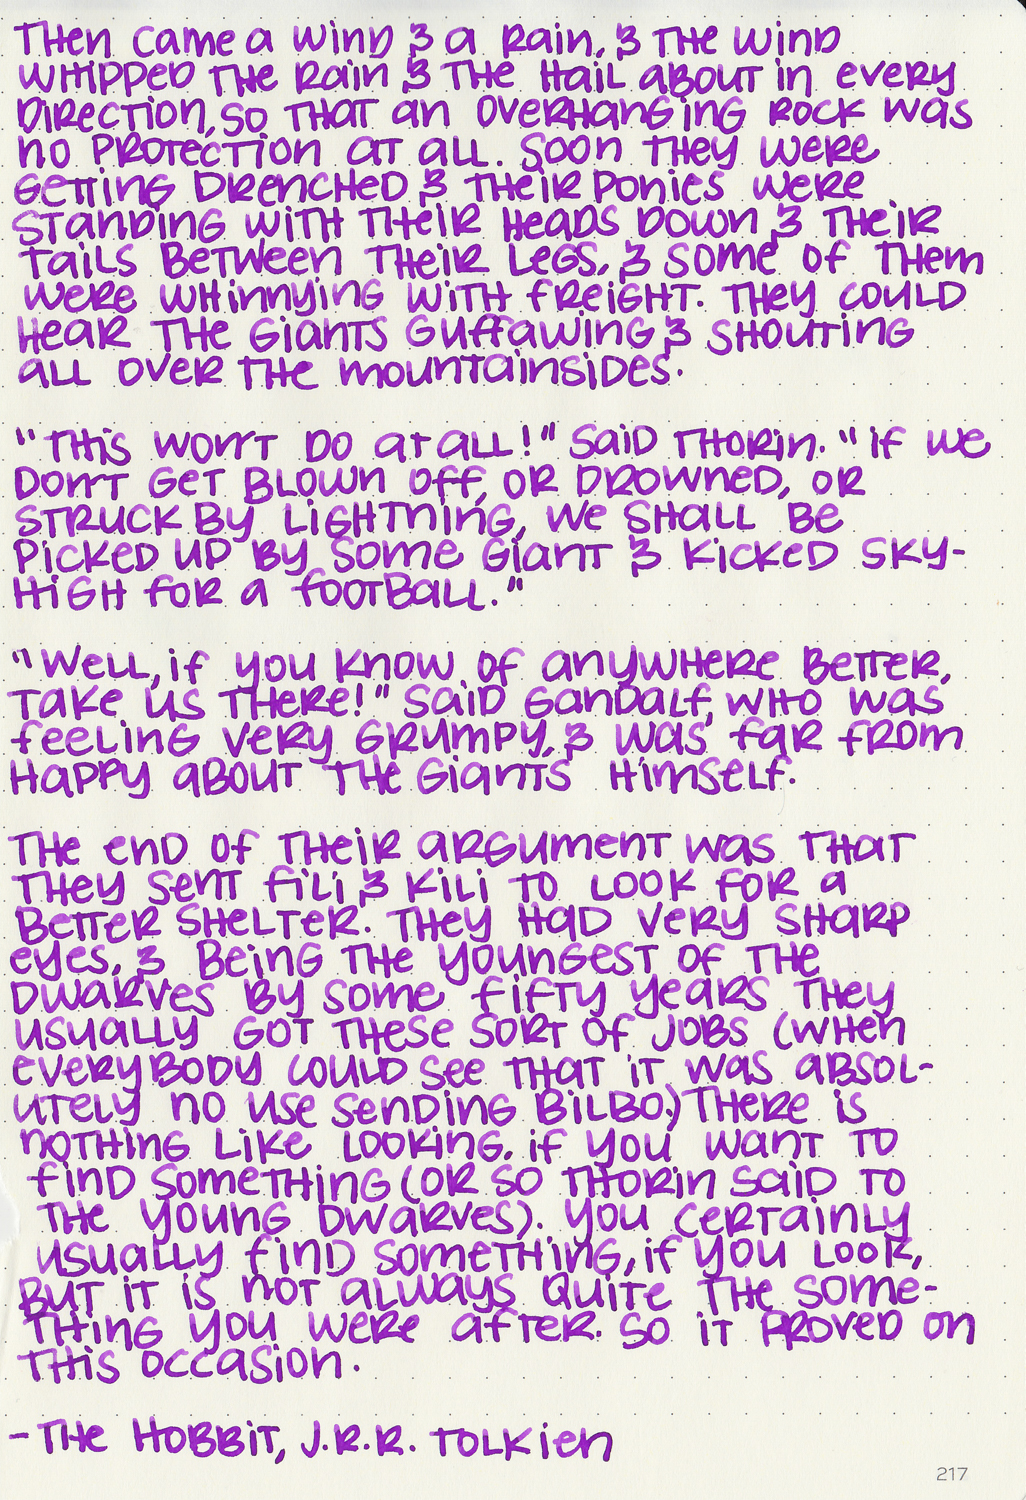 Then came a wind & a rain, & the wind
whipped the rain & the hail about in every
direction, so that an overhanging rock was
no protection at all. Soon they were
getting drenched & their ponies were
standing with their heads down & their
tails between their legs, & some of them
were whinnying with freight. They could
hear the giants guffawing & shouting
all over the mountainsides.
"This won't do at all!" said Thorin. "If we
don't get blown off, or drowned, or
struck by lightning, we shall be
picked up by some giant & kicked sky-
high for a football."
"Well, if you know of anywhere better,
take us there!" said Gandalf, who was
feeling very grumpy, & was far from
happy about the giants himself.
The end of their argument was that
they sent Fili & Kili to look for a
better shelter. They had very sharp
eyes, & being the youngest of the
dwarves by some fifty years they
usually got these sort of jobs (when
everybody could see that it was absol-
utely no use sending Bilbo.) There is
nothing like looking, if you want to
find something (or so Thorin said to
the young dwarves). You certainly
usually find something, if you look,
but it is not always quite the some-
thing you were after. So it proved on
this occasion.
-The Hobbit, J.R.R. Tolkien
217